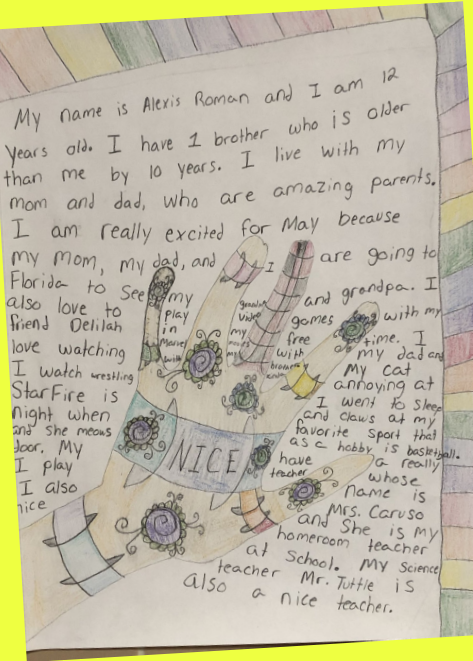 My name is Alexis Roman and I am 12
years old. I have 1 brother who is older
than me by 10 years. I live with my
mom and dad, who are amazing parents.
I am really excited for May because
my mom, my dad, and I are going to
Florida to see my grandma and grandpa. I
also love to play video games with my
friend Delilah in my free time. I
love watching with my dad and
I watch wrestling My cat
StarFire is annoying at
night when I went to sleep
and she meows and claws at my
door. My favorite sport that
I play as a hobby is basketball.
I also have a really
nice teacher whose
name is
Mrs. Caruso
and she is my
homeroom teacher
at school. My science
teacher Mr. Tuttle is
also a nice teacher.
NICE